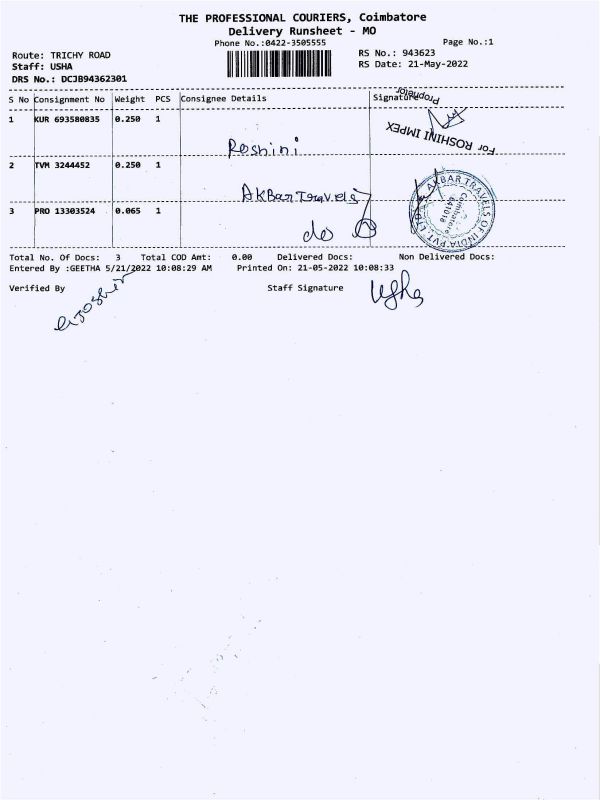 THE PROFESSIONAL COURIERS, Coimbatore
Delivery Runsheet - MO
Phone No.:0422-3505555 Page No.:1
Route: TRICHY ROAD RS No.: 943623
Staff: USHA RS Date: 21-May-2022
DRS No.: DCJB94362301
S No Consignment No Weight PCS Consignee Details Signature
Proprietor
1 KUR 693580835 0.250 1
For ROSHINI IMPEX
Roshini
2 TVM 3244452 0.250 1
AKBar Travels
AKBAR TRAVELS OF INDIA PVT. LTD
Coimbatore
641018
3 PRO 13303524 0.065 1
do
Total No. Of Docs: 3 Total COD Amt: 0.00 Delivered Docs: Non Delivered Docs:
Entered By :GEETHA 5/21/2022 10:08:29 AM Printed On: 21-05-2022 10:08:33
Verified By Staff Signature
Usha